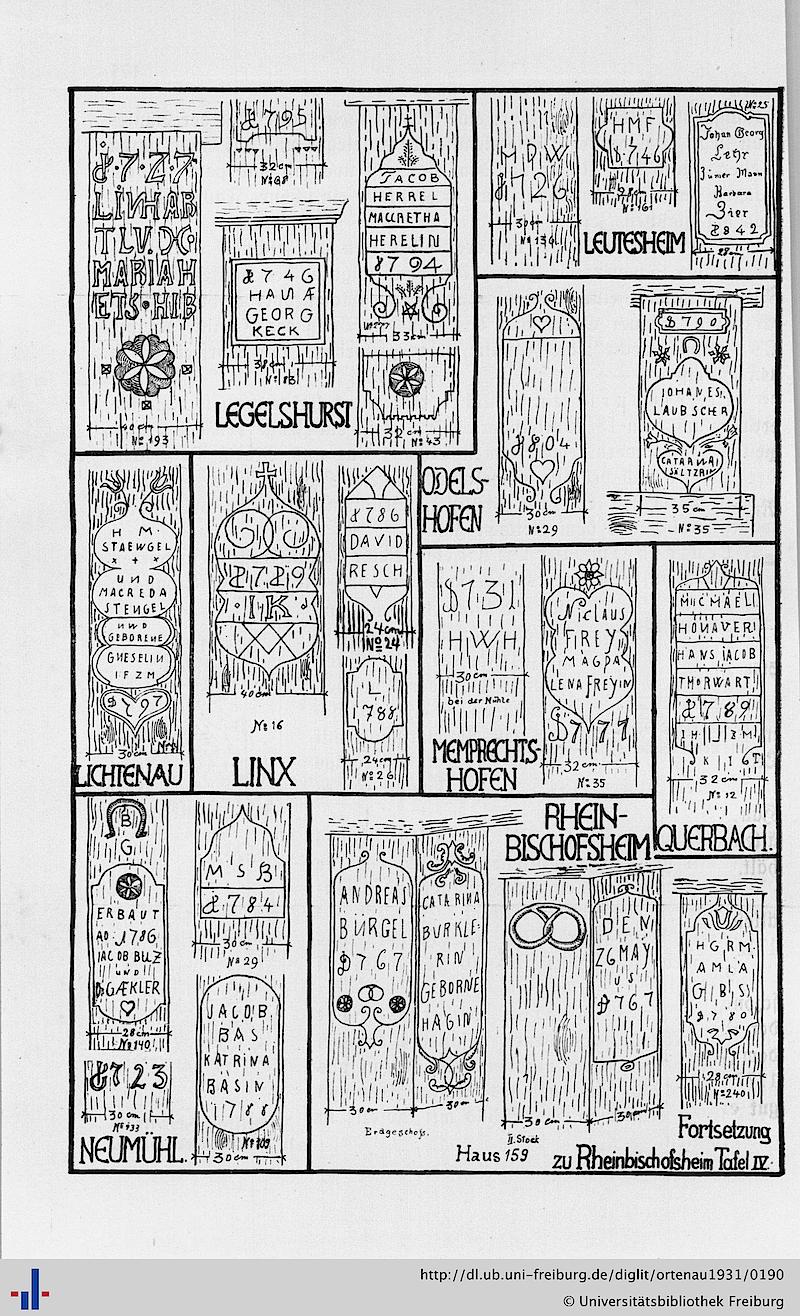 1.7.27
LINHAB
TLV.DC.
MARIAH
ETS.HIB
40cm
№ 193
1795
32cm
№ 68
1746
HANS Æ
GEORG
KECK
38cm
№ 83
JACOB
HERREL
MAGRETHA
HERELIN
1794
№ 277
33cm
32cm
№ 43
LEGELSHURST
MDW
1726
30cm
№ 136
HMF
1746
28cm
№ 161
№ 25
Johan Georg
Lehr
Zimer Mann
Barbara
Zier
1842
28cm
LEUTESHEIM
1804
30cm
№ 29
1790
JOHANES
LAUBSCHER
CATARINA
SÄLTZRIN
35cm
№ 35
ODELS-
HOFEN
H M.
STAEWGEL
UND
MAGREDA
STENGEL
UND
GEBORENE
GNESELIN
I F Z M
1797
30cm
LICHTENAU
1789
I K
40cm
№ 16
1786
DAVID
RESCH
24cm
№ 24
L
788
24cm
№ 26
LINX
1731
HWH
30cm
bei der Mühle
NICLAUS
FREY
MAGDA
LENA FREYIN
1777
32cm
№ 35
MEMPRECHTS-
HOFEN
MICMAELI
HONAVERI
HANS JACOB
THORWART
1789
32cm
№ 12
QUERBACH.
B
G
ERBAUT
AO 1786
IACOB BUZ
UND
D. GÆKLER
28cm
№ 140
1723
30cm
№ 133
M S B
1784
30cm
№ 29
JACOB
BAS
KATRINA
BASIN
1788
№ 109
30cm
NEUMÜHL.
RHEIN-
BISCHOFSHEIM
ANDREAS
BÜRGEL
1767
30cm
CATARINA
BURKLE-
RIN
GEBORNE
HAGIN
30cm
Erdgeschoss.
30cm
II. Stock
DEN
26 MAY
US
1767
30cm
Haus 159
HGRM
AMLA
GIBSI
1780
28cm
№ 240
Fortsetzung
zu Rheinbischofsheim Tafel IV.
http://dl.ub.uni-freiburg.de/diglit/ortenau1931/0190
© Universitätsbibliothek Freiburg